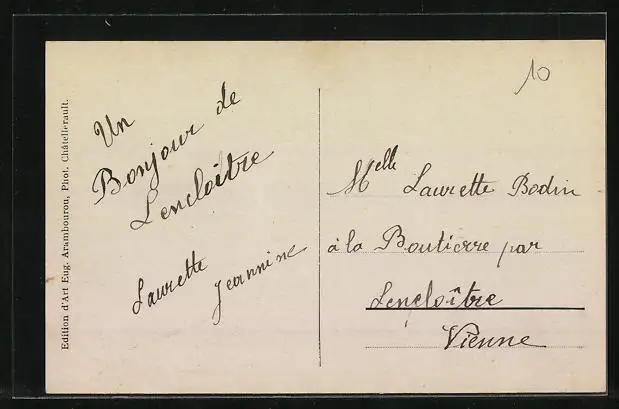 10
Edition d'Art Eug. Arambourou, Phot. Châtellerault.
Un
Bonjour de
Lencloître
Laurette
Jeannine
Melle Laurette Bodin
à la Boutierre par
Lencloître
Vienne